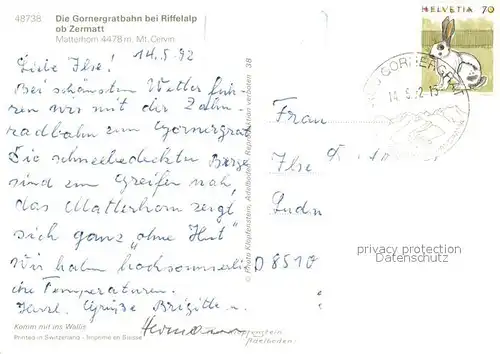 48738
Die Gornergratbahn bei Riffelalp
ob Zermatt
Matterhorn 4478 m, Mt. Cervin
HELVETIA 70
14.5.92
Liebe Ilse!
Bei schönstem Wetter fuh-
ren wir mit der Zahn-
radbahn zum Gornergrat
Die schneebedeckten Berge
sind zum Greifen nah,
das Matterhorn zeigt
sich ganz "ohne Hut"
Wir haben hochsommerli
che Temperaturen.
Herzl. Grüße Brigitte u.
Hermann
Frau
Ilse
D 8510
privacy protection
Datenschutz
© Photo Klopfenstein, Adelboden, Reproduktion verboten 38
Komm mit ins Wallis
Printed in Switzerland - Imprimé en Suisse
Adelboden